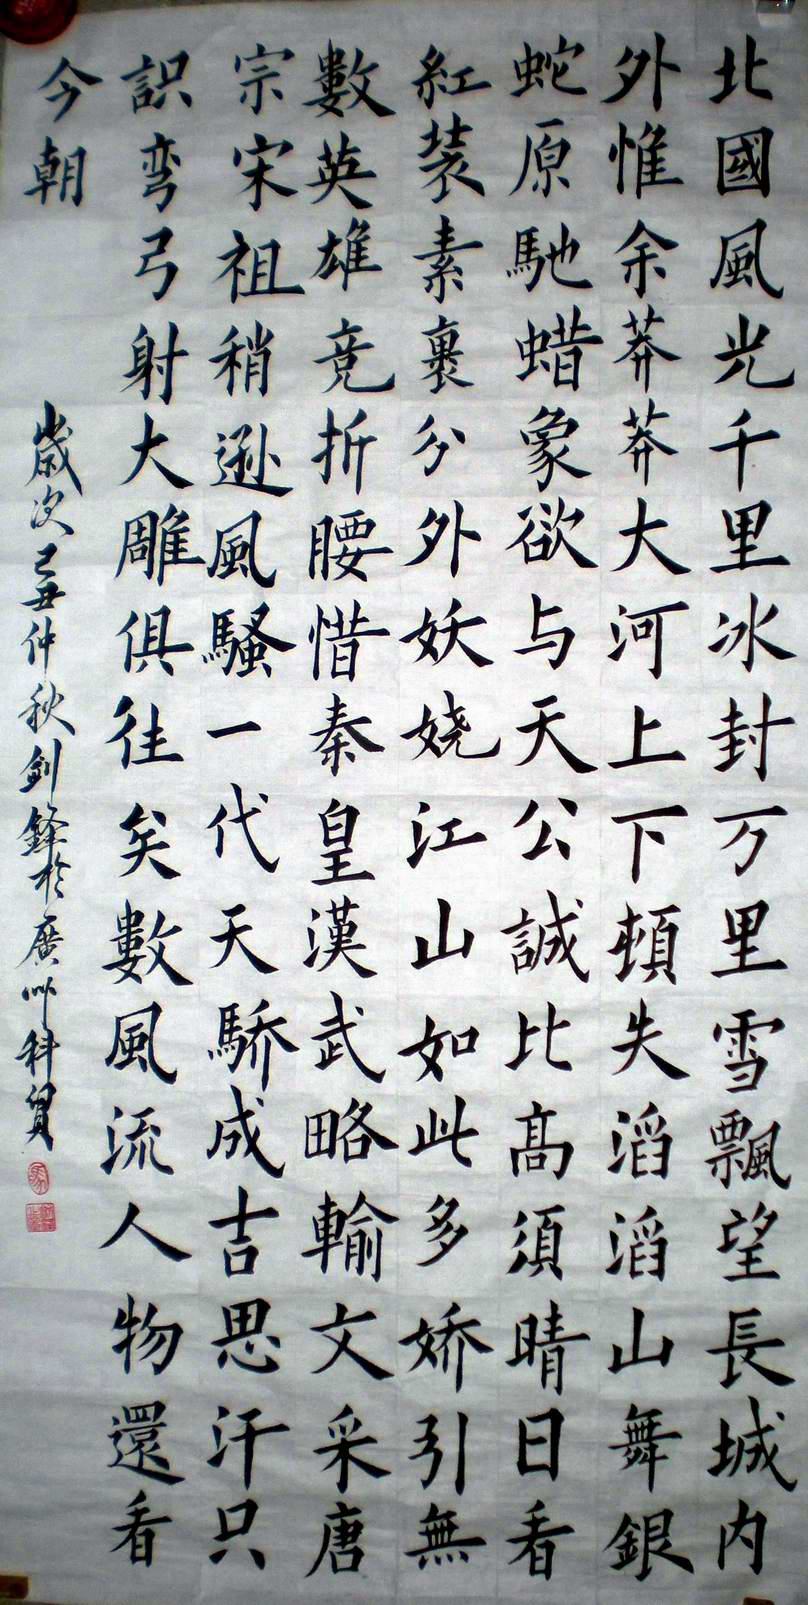 北國風光千里冰封万里雪飄望長城内
外惟余莽莽大河上下頓失滔滔山舞銀
蛇原馳蜡象欲与天公誠比高須晴日看
紅装素裹分外妖娆江山如此多娇引無
數英雄竞折腰惜秦皇漢武略輸文采唐
宗宋祖稍遜風騷一代天驕成吉思汗只
識弯弓射大雕俱往矣數風流人物還看
今朝
歲次己丑仲秋剑鋒於廣州科貿